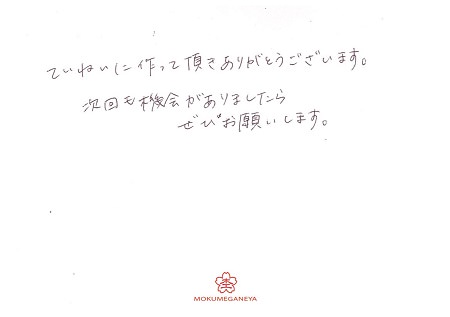 ていねいに作って頂きありがとうございます。
次回も機会がありましたら
ぜひお願いします。
MOKUMEGANEYA